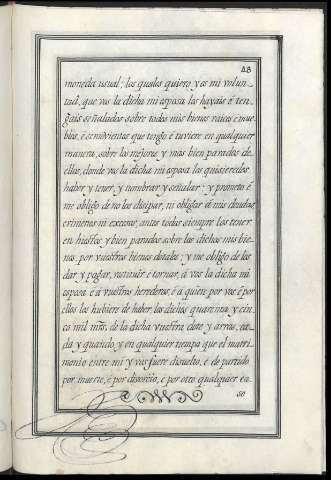 48
moneda usual; los quales quiero, y es mi volun-
tad, que vos la dicha mi esposa los hayais é ten-
gais señalados sobre todos mis bienes raices é mue-
bles, é semovientes que tengo é tuviere en qualquier
manera, sobre los mejores y mas bien parados de
ellos, donde vos la dicha mi esposa los quisieredes
haber y tener, y nombrar y señalar: y prometo é
me obligo de no los disipar, ni obligar á mis deudas,
crimenes ni excesos, antes todos siempre los tener
en hiestos y bien parados sobre los dichos mis bie-
nes, por vuestros bienes dotales; y me obligo de los
dar y pagar, restituir é tornar, á vos la dicha mi
esposa é á vuestros herederos, é á quien por vos é por
ellos los hubiere de haber, los dichos quarenta y cin-
co mil mrs. de la dicha vuestra dote y arras, ca-
da y quando, y en qualquier tiempo que el matri-
monio entre mi y vos fuere disuelto, é de partido
por muerte, é por divorcio, é por otro qualquier ca-
so